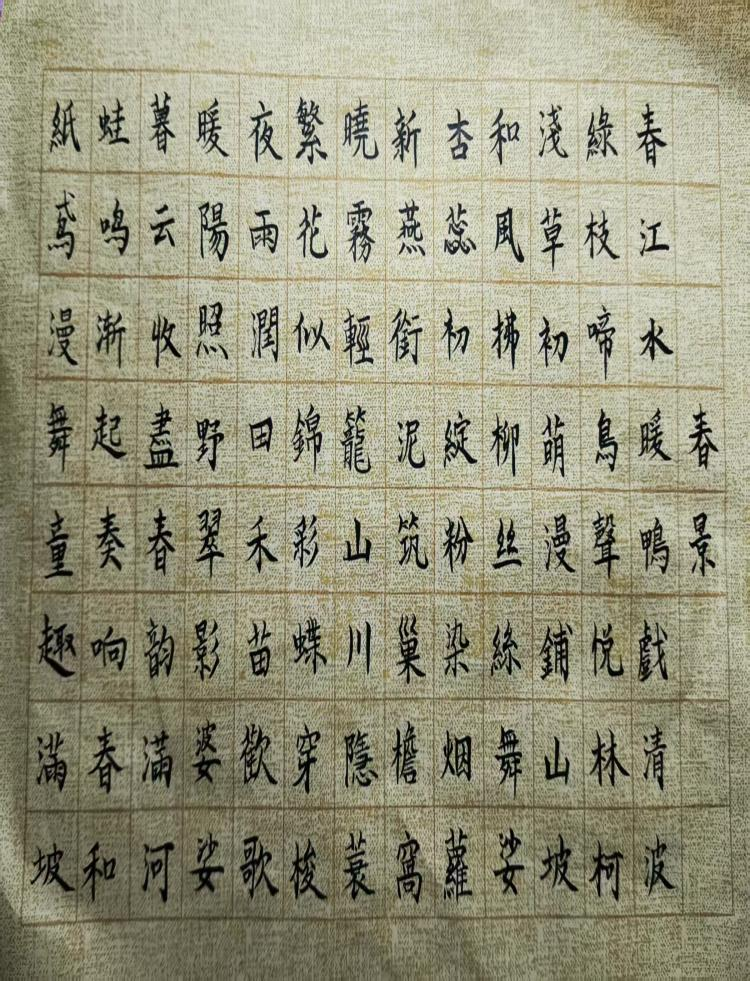 春景
春江水暖鴨戲清波
綠枝啼鳥聲悅林柯
淺草初萌漫鋪山坡
和風拂柳丝絲舞娑
杏蕊初綻粉染烟蘿
新燕銜泥筑巢檐窩
曉霧輕籠山川隱蓑
繁花似錦彩蝶穿梭
夜雨潤田禾苗歡歌
暖陽照野翠影婆娑
暮云收盡春韵滿河
蛙鸣渐起奏响春和
紙鳶漫舞童趣滿坡